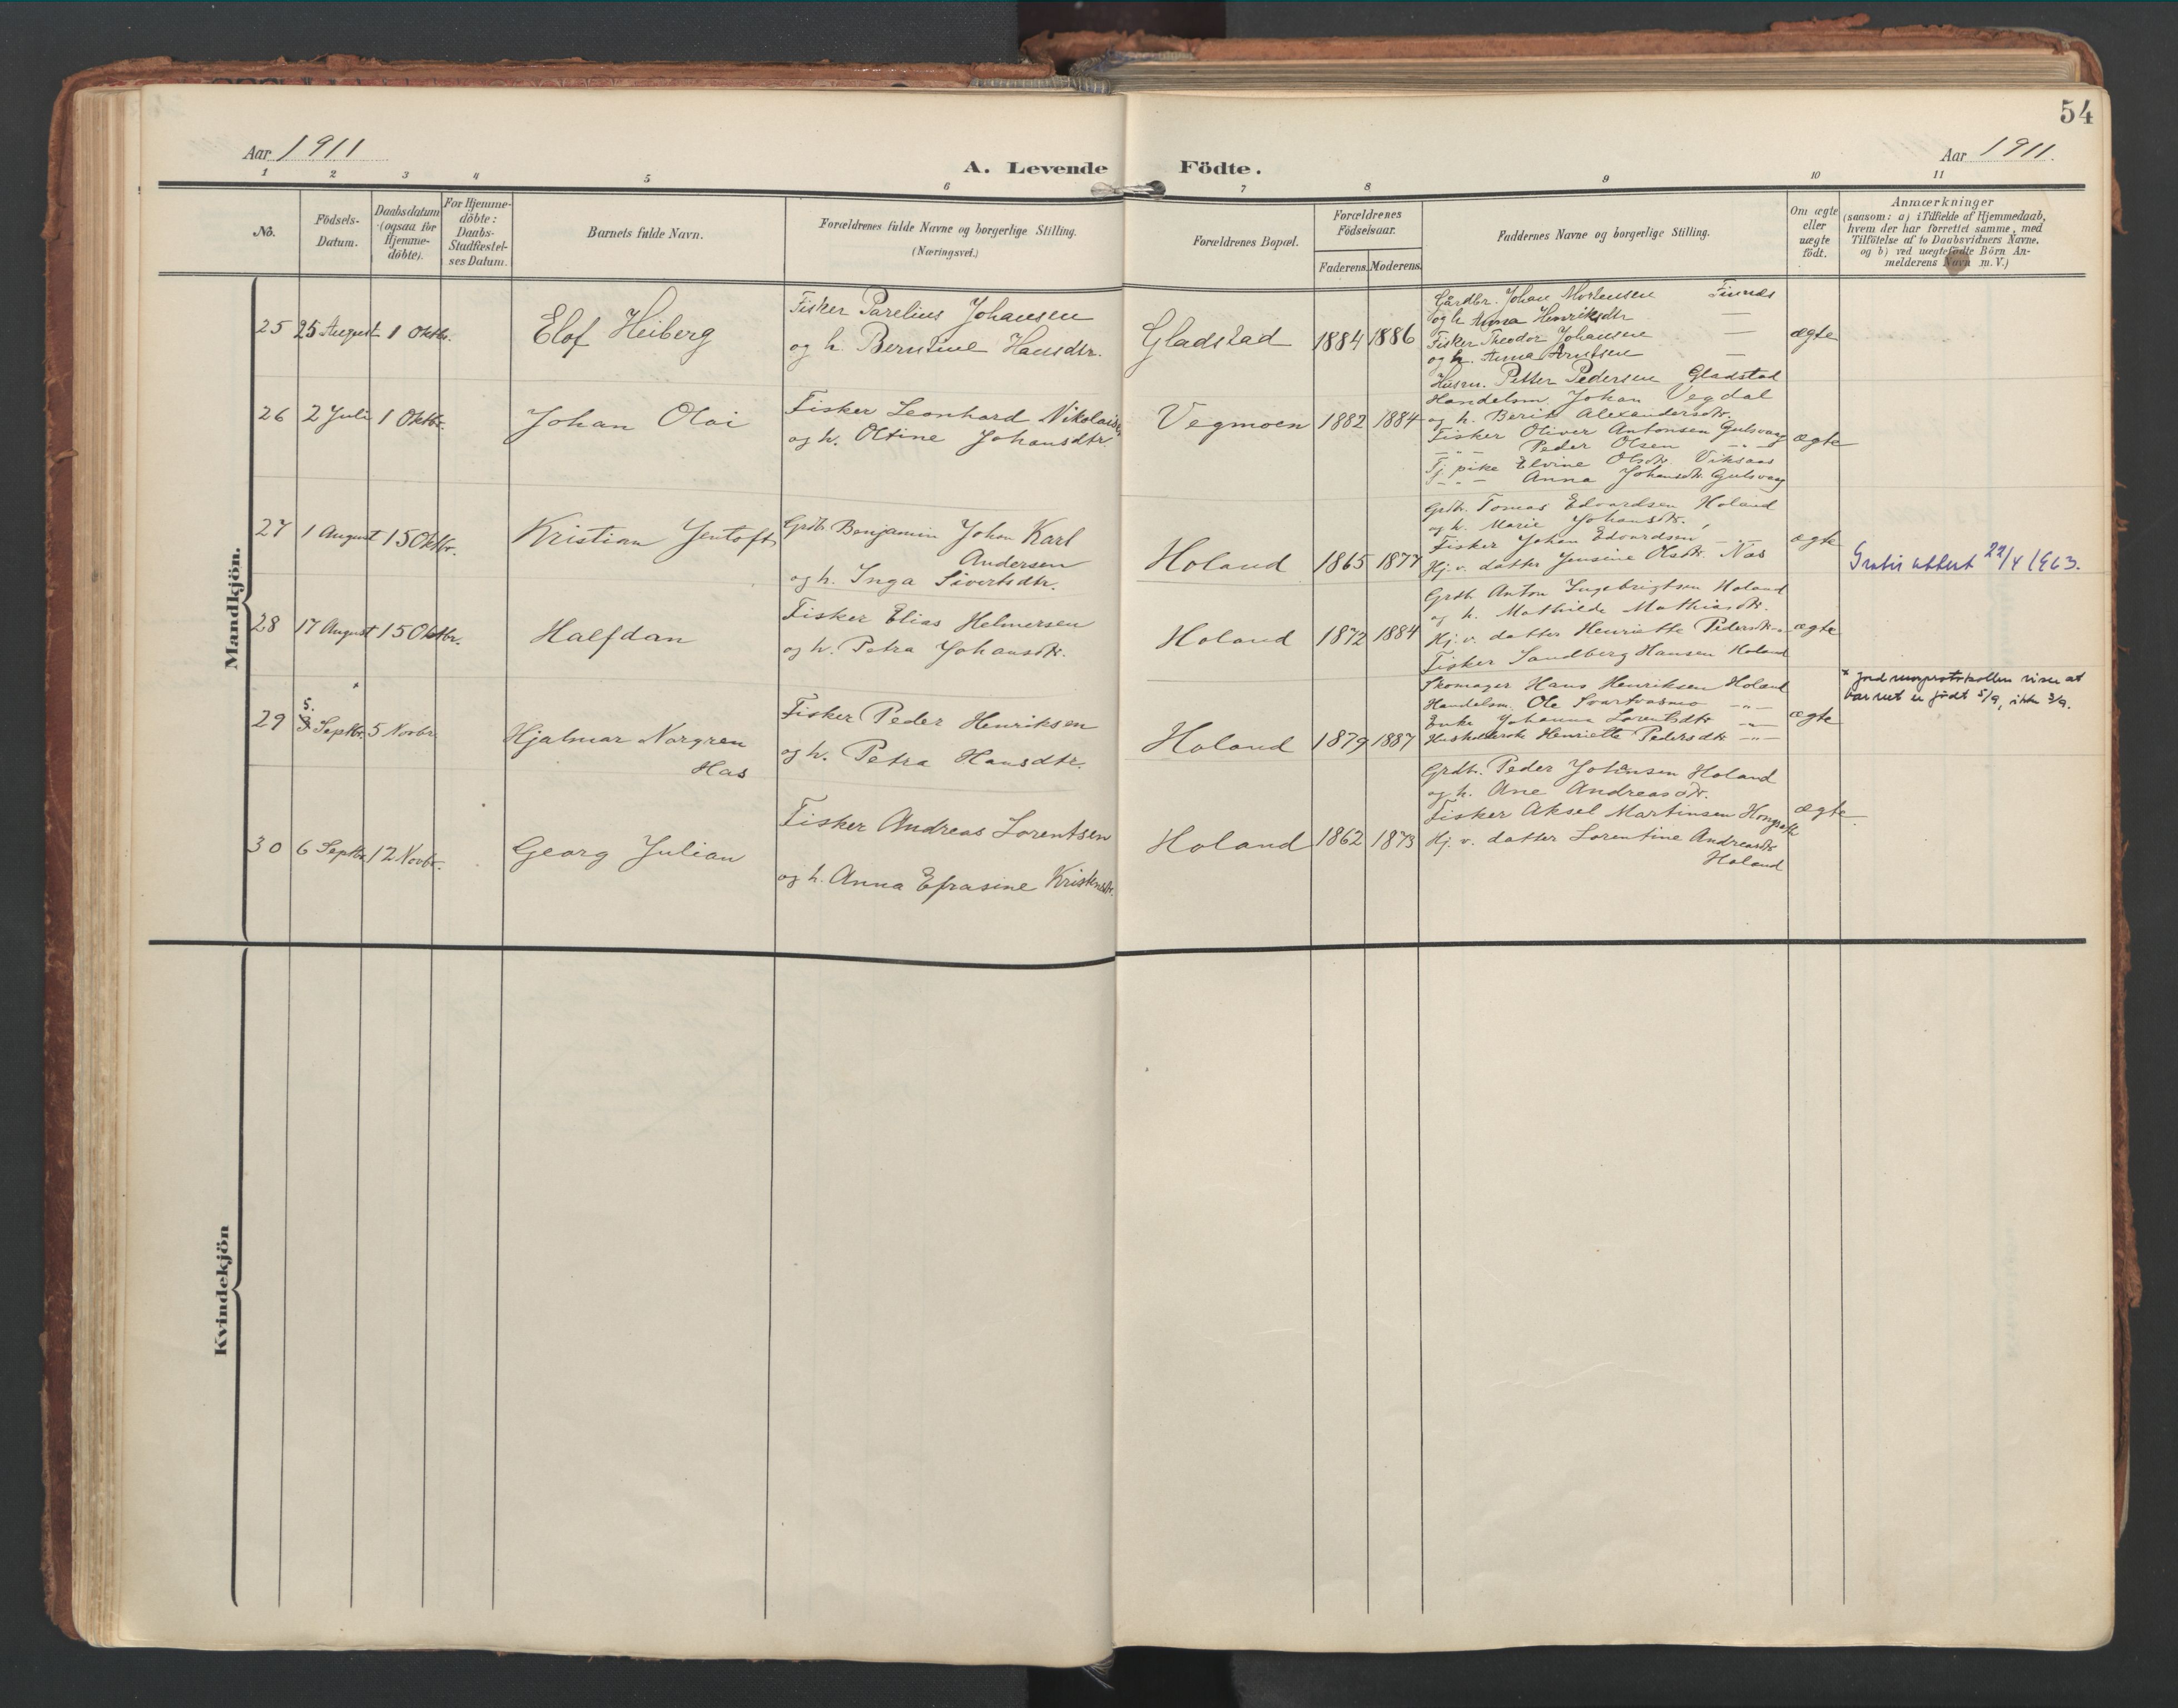 54
Aar 1911
A. Levende Födte.
Aar 1911.
1 2 3 4 5 6 7 8 9 10 11
No.
Födsels-
Datum.
Daabsdatum
(ogsaa for
Hjemme-
döbte).
For Hjemme-
döbte:
Daabs-
Stadfæstel-
ses Datum.
Barnets fulde Navn.
Forældrenes fulde Navne og borgerlige Stilling.
(Næringsvei.)
Forældrenes Bopæl.
Forældrenes
Födselsaar.
Faderens. Moderens.
Faddernes Navne og borgerlige Stilling.
Om ægte
eller
uægte
födt.
Anmærkninger
(saasom: a) i Tilfælde af Hjemmedaab,
hvem der har forrettet samme, med
Tilföielse af to Daabsvidners Navne.
og b) ved uægtefödte Börn An-
melderens Navn m. V.)
Mandkjön.
25 25 August 1 Oktbr. Elof Heiberg
Fisker Parelius Johansen
og h. Berntine Hansdtr.
Gladstad 1884 1886
Gårdbr. Johan Mortensen Finnes
og h. Anna Henriksdtr —
Fisker Theodor Johansen —
og h. Anna Arntsen —
Husm. Petter Pedersen Gladstad
ægte
26 2 Juli 1 Oktbr. Johan Olai
Fisker Leonhard Nikolaisen
og h. Oltine Johansdtr.
Vegmoen 1882 1884
Handelsm. Johan Vegdal
og h. Berit Alexandersdtr.
Fisker Oliver Antonsen Gulsvaag
—"— Peder Olsen —"—
Tj. pike Elvine Olsdtr. Viksaas
T- " - Anna Johansdtr. Gulsvaag
ægte
27 1 August 15 Oktbr. Kristian Jentoft
Grdbr. Benjamin Johan Karl
Andersen
og h. Inga Sivertsdtr.
Holand 1865 1877
Grdbr. Tomas Edvardsen Holand
og h. Marie Johansdtr.
Fisker Johan Edvardsen —"—
Hj. v. datter Jensine Olsdtr. Nes
ægte
Gratis attest 22/4 1963.
28 17 August 15 Oktbr. Halfdan
Fisker Elias Helmersen
og h. Petra Johansdtr.
Holand 1872 1884
Grdb. Anton Ingebrigtsen Holand
og h. Mathilde Mathiasdtr.
Hj. v. datter Henriette Pedersdtr. —"—
Fisker Sandberg Hansen Holand
ægte
29 3 Septbr. 5. × 5 Novbr. Hjalmar Norgren
Has
Fisker Peder Henriksen
og h. Petra Hansdtr.
Holand 1879 1887
Skomager Hans Henriksen Holand
Handelsm. Ole Svartvasmo —"—
Enke Johanna Lorentsdtr —"—
Husholderske Henriette Pedersdtr —"—
ægte
× Jordmorprotokollen viser at
barnet er födt 5/9, ikke 3/9.
30 6 Septbr. 12 Novbr. Georg Julian
Fisker Andreas Lorentsen
og h. Anna Efrasine Kristensdtr.
Holand 1862 1873
Grdbr. Peder Johansen Holand
og h. Ane Andreasdtr.
Fisker Aksel Martinsen
Hj. v. datter Lorentine Andreasdtr
Holand
ægte
Kvindekjön